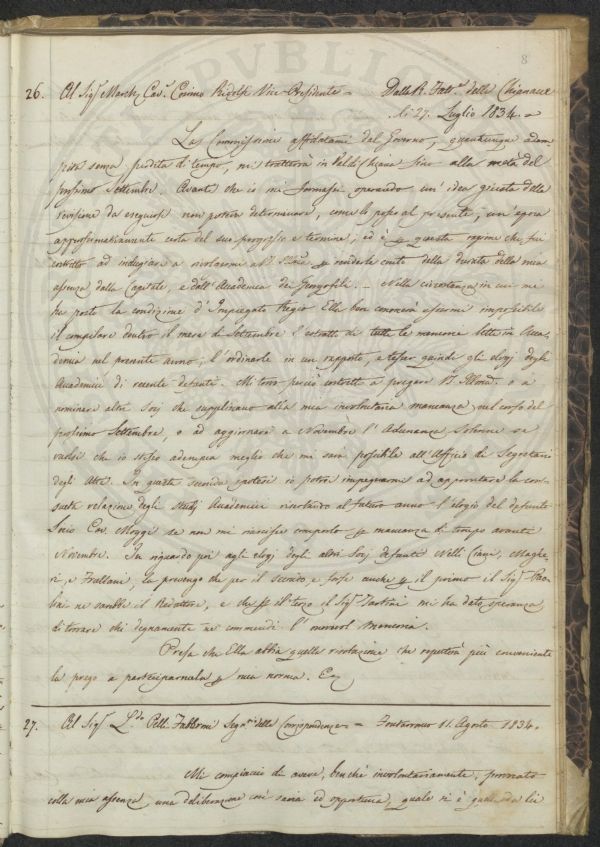 8
26. Al Sig.r March. Cav.r Cosimo Ridolfi Vice-Presidente = Dalla R. Fatt.a delle Chianacce
li 27. Luglio 1834. =
Las Commissioni affidatami dal Governo, quantunque adem
pita senza perdita di tempo, mi tratterrà in Val di Chiana fino alla metà del
prossimo Settembre. Avanti che io mi formassi operando un' idea giusta delle
revisione da eseguirsi non poteva determinare, come lo posso al presente, un' epoca
approssimativamente certa del suo progresso e termine; ed è p questa ragione che fui
costretto ad indugiare a rivolgermi a V.S. Ill.ma p renderle conto della durata della mia
assenza dalla Capitale, e dall' Accademia dei Georgofili. = Nella circostanza in cui mi
ha posto la condizione d' Impiegato Regio Ella ben conoscerà essermi impossibile
il compilare dentro il mese di Settembre l' estratto di tutte le memorie lette in Acca
demia nel presente anno; l' ordinarle in un rapporto, e tesser quindi gli elogj degli
Accademici di recente defunti. Mi trovo perciò costretto a pregare V.S. Illma. o a
nominare altro Socj che suppliscano alla mia involontaria mancanza nel corso del
prossimo Settembre, o ad aggiornare a Novembre l' Adunanza Solenne se
vuolsi che io stesso adempia meglio che mi sarà possibile all' Officio di Segretario
degli Atti. In questa seconda ipotesi io potrò impegnarmi ad approntare la con
sueta relazione degli studj Accademici riserbando al futuro anno l' elogio del defunto
Socio Cav. Moggi se non mi riuscisse comporlo p mancanza di tempo avanti
Novembre. In riguardo poi agli elogj degli altri Socj defunti Nelli Ciani, Maghe
ri, e Frullani, La prevengo che per il secondo, e forse anche p il primo il Sig.r Pao
bai ne sarebbe il Redattore, e che p il terzo il Sig.r Tartini mi ha dato speranza
di trovare chi degnamente ne commendi l' onorevol memoria.
Presa che Ella abbia quella risoluzione che reputerà più conveniente
la prego a parteciparmela p mia norma. E
27. Al Sig.r Pell. Fabbroni Seg.rio della Corrispondenza = Pontarrosso 11. Agosto 1834.
Mi compiaccio di avere, benchè involontariamente, provocato
colla mia assenza una deliberazione così savia ed opportuna, quale si è quella da lei